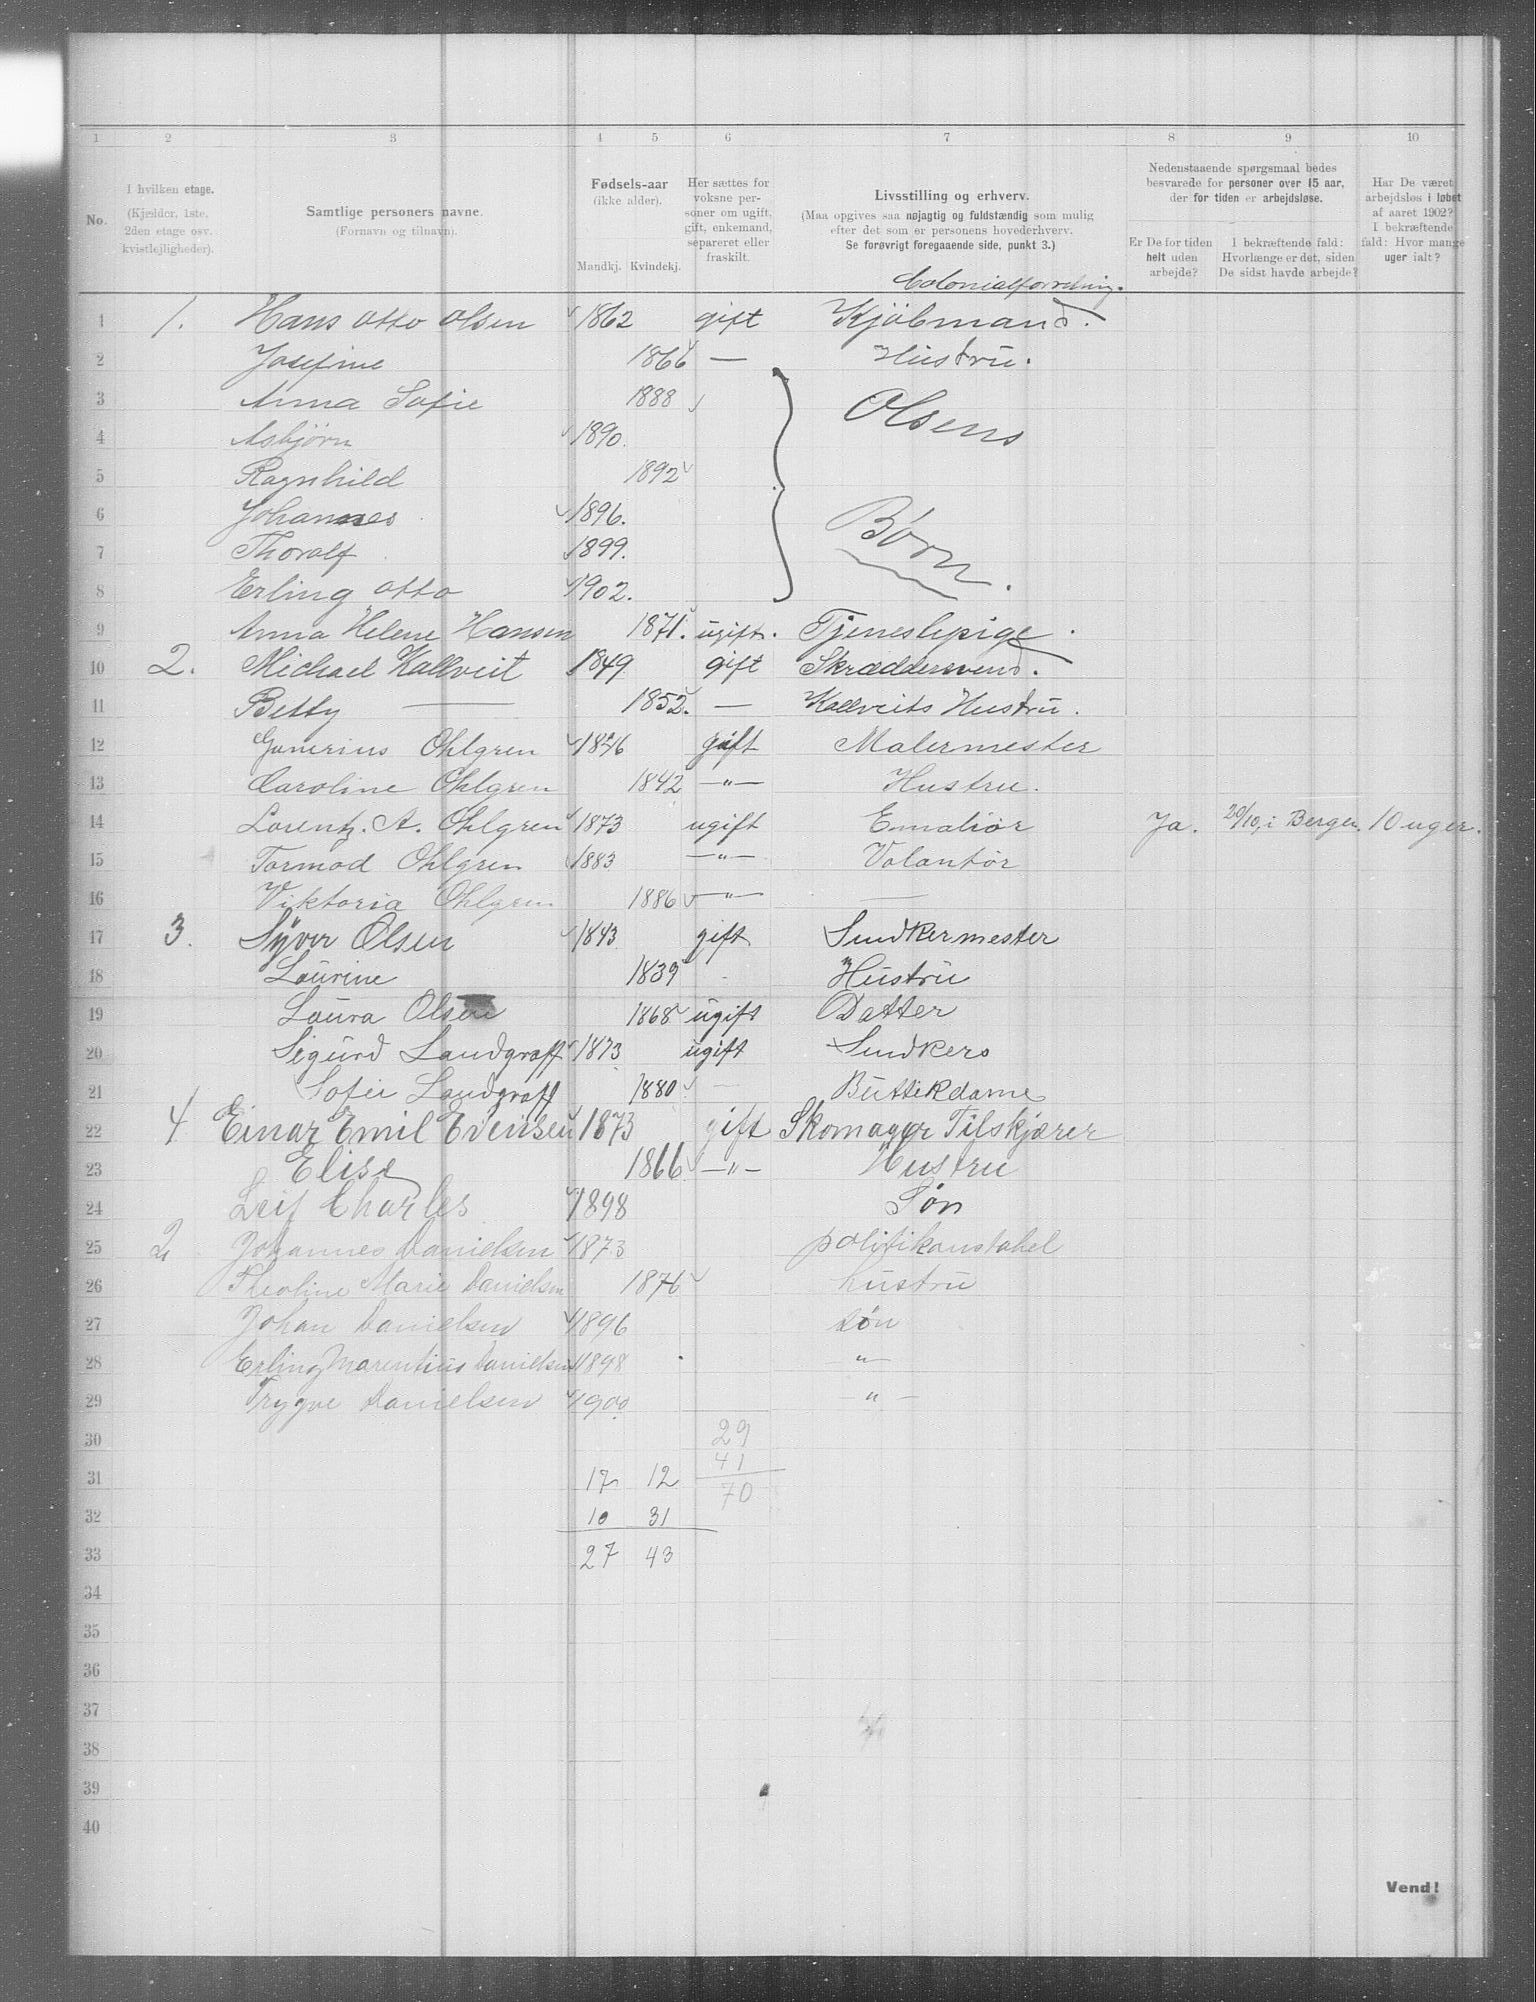 1 2 3 4 5 6 7 8 9 10
No.
I hvilken etage.
(Kjælder, 1ste,
2den etage osv.
kvistlejligheder).
Samtlige personers navne.
(Fornavn og tilnavn).
Fødsels-aar
(ikke alder).
Mandkj. Kvindekj.
Her sættes for
voksne per-
soner om ugift,
gift, enkemand,
separeret eller
fraskilt.
Livsstilling og erhverv.
(Maa opgives saa nøjagtig og fuldstændig som mulig
efter det som er personens hovederhverv.
Se forøvrigt foregaaende side, punkt 3.)
Nedenstaaende spørgsmaal bedes
besvarede for personer over 15 aar,
der for tiden er arbejdsløse.
Er De for tiden
helt uden
arbejde?
I bekræftende fald:
Hvorlænge er det, siden
De sidst havde arbejde?
Har De været
arbejdsløs i løbet
af aaret 1902?
I bekræftende
fald: Hvor mange
uger ialt?
Colonialforretning.
1 1. Hans Otto Olsen 1862 gift Kjöbmand.
2 Josefine 1866 — Hustru.
3 Anna Sofie 1888 Olsens
4 Asbjørn 1890.
5 Ragnhild 1892
6 Johannes 1896. Børn.
7 Thoralf 1899.
8 Erling Otto 1902.
9 Anna Helene Hansen 1871. ugift. Tjenestepige.
10 2. Michael Kallveit 1849 gift Skræddersvend.
11 Betty — 1852. — Kallveits Hustru.
12 Ohlgren gift Malermester
13 Caroline Ohlgren 1842 —"— Hustru.
14 Lorentz. A. Ohlgren 1873 ugift Emaliør Ja. 20/10, i Bergen. 10 uger.
15 Tormod Ohlgren 1883 —"— Volantör
16 Viktoria Ohlgren 1886 —"— —
17 3. Syver Olsen 1843 gift Snedkermester
18 Laurine 1839 Hustru
19 Laura Olsen 1868 ugift Datter
20 Sigurd Landgraff 1873 ugift Snedkers
21 Sofie Landgraff 1880 — Buttikdame
22 4 Einar Emil Evensen 1873 gift Skomager Tilskjærer
23 Elise 1866 —"— Hustru
24 Leif Charles 1898 Søn
25 2 Johannes Danielsen 1873 politikonstabel
26 Theoline Marie Danielsen 1876 hustru
27 Johan Danielsen 1896 søn
28 Erling Marentius Danielsen 1898 —"—
29 Trygve Danielsen 1900 —"—
30 29
31 17 12 41
70
32 10 31
33 27 43
34
35
36
37
38
39
40
Vend!